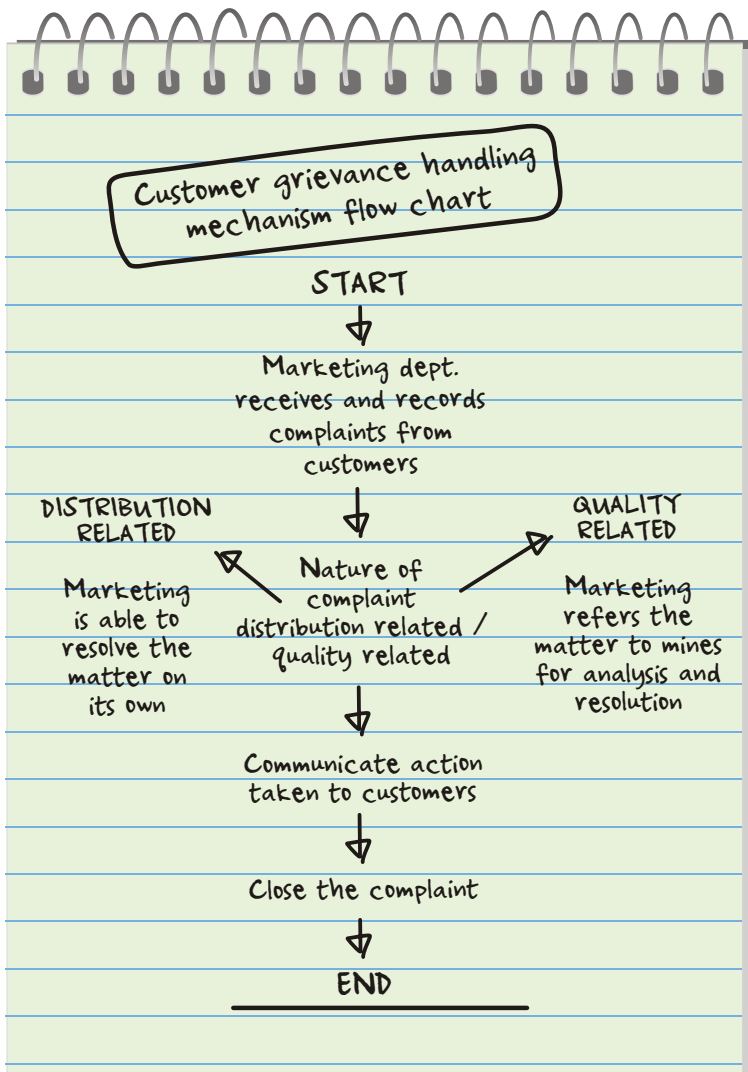 Customer grievance handling
mechanism flow chart
START
Marketing dept.
receives and records
complaints from
customers
DISTRIBUTION
RELATED
Marketing
is able to
resolve the
matter on
its own
Nature of
complaint
distribution related /
quality related
QUALITY
RELATED
Marketing
refers the
matter to mines
for analysis and
resolution
Communicate action
taken to customers
Close the complaint
END